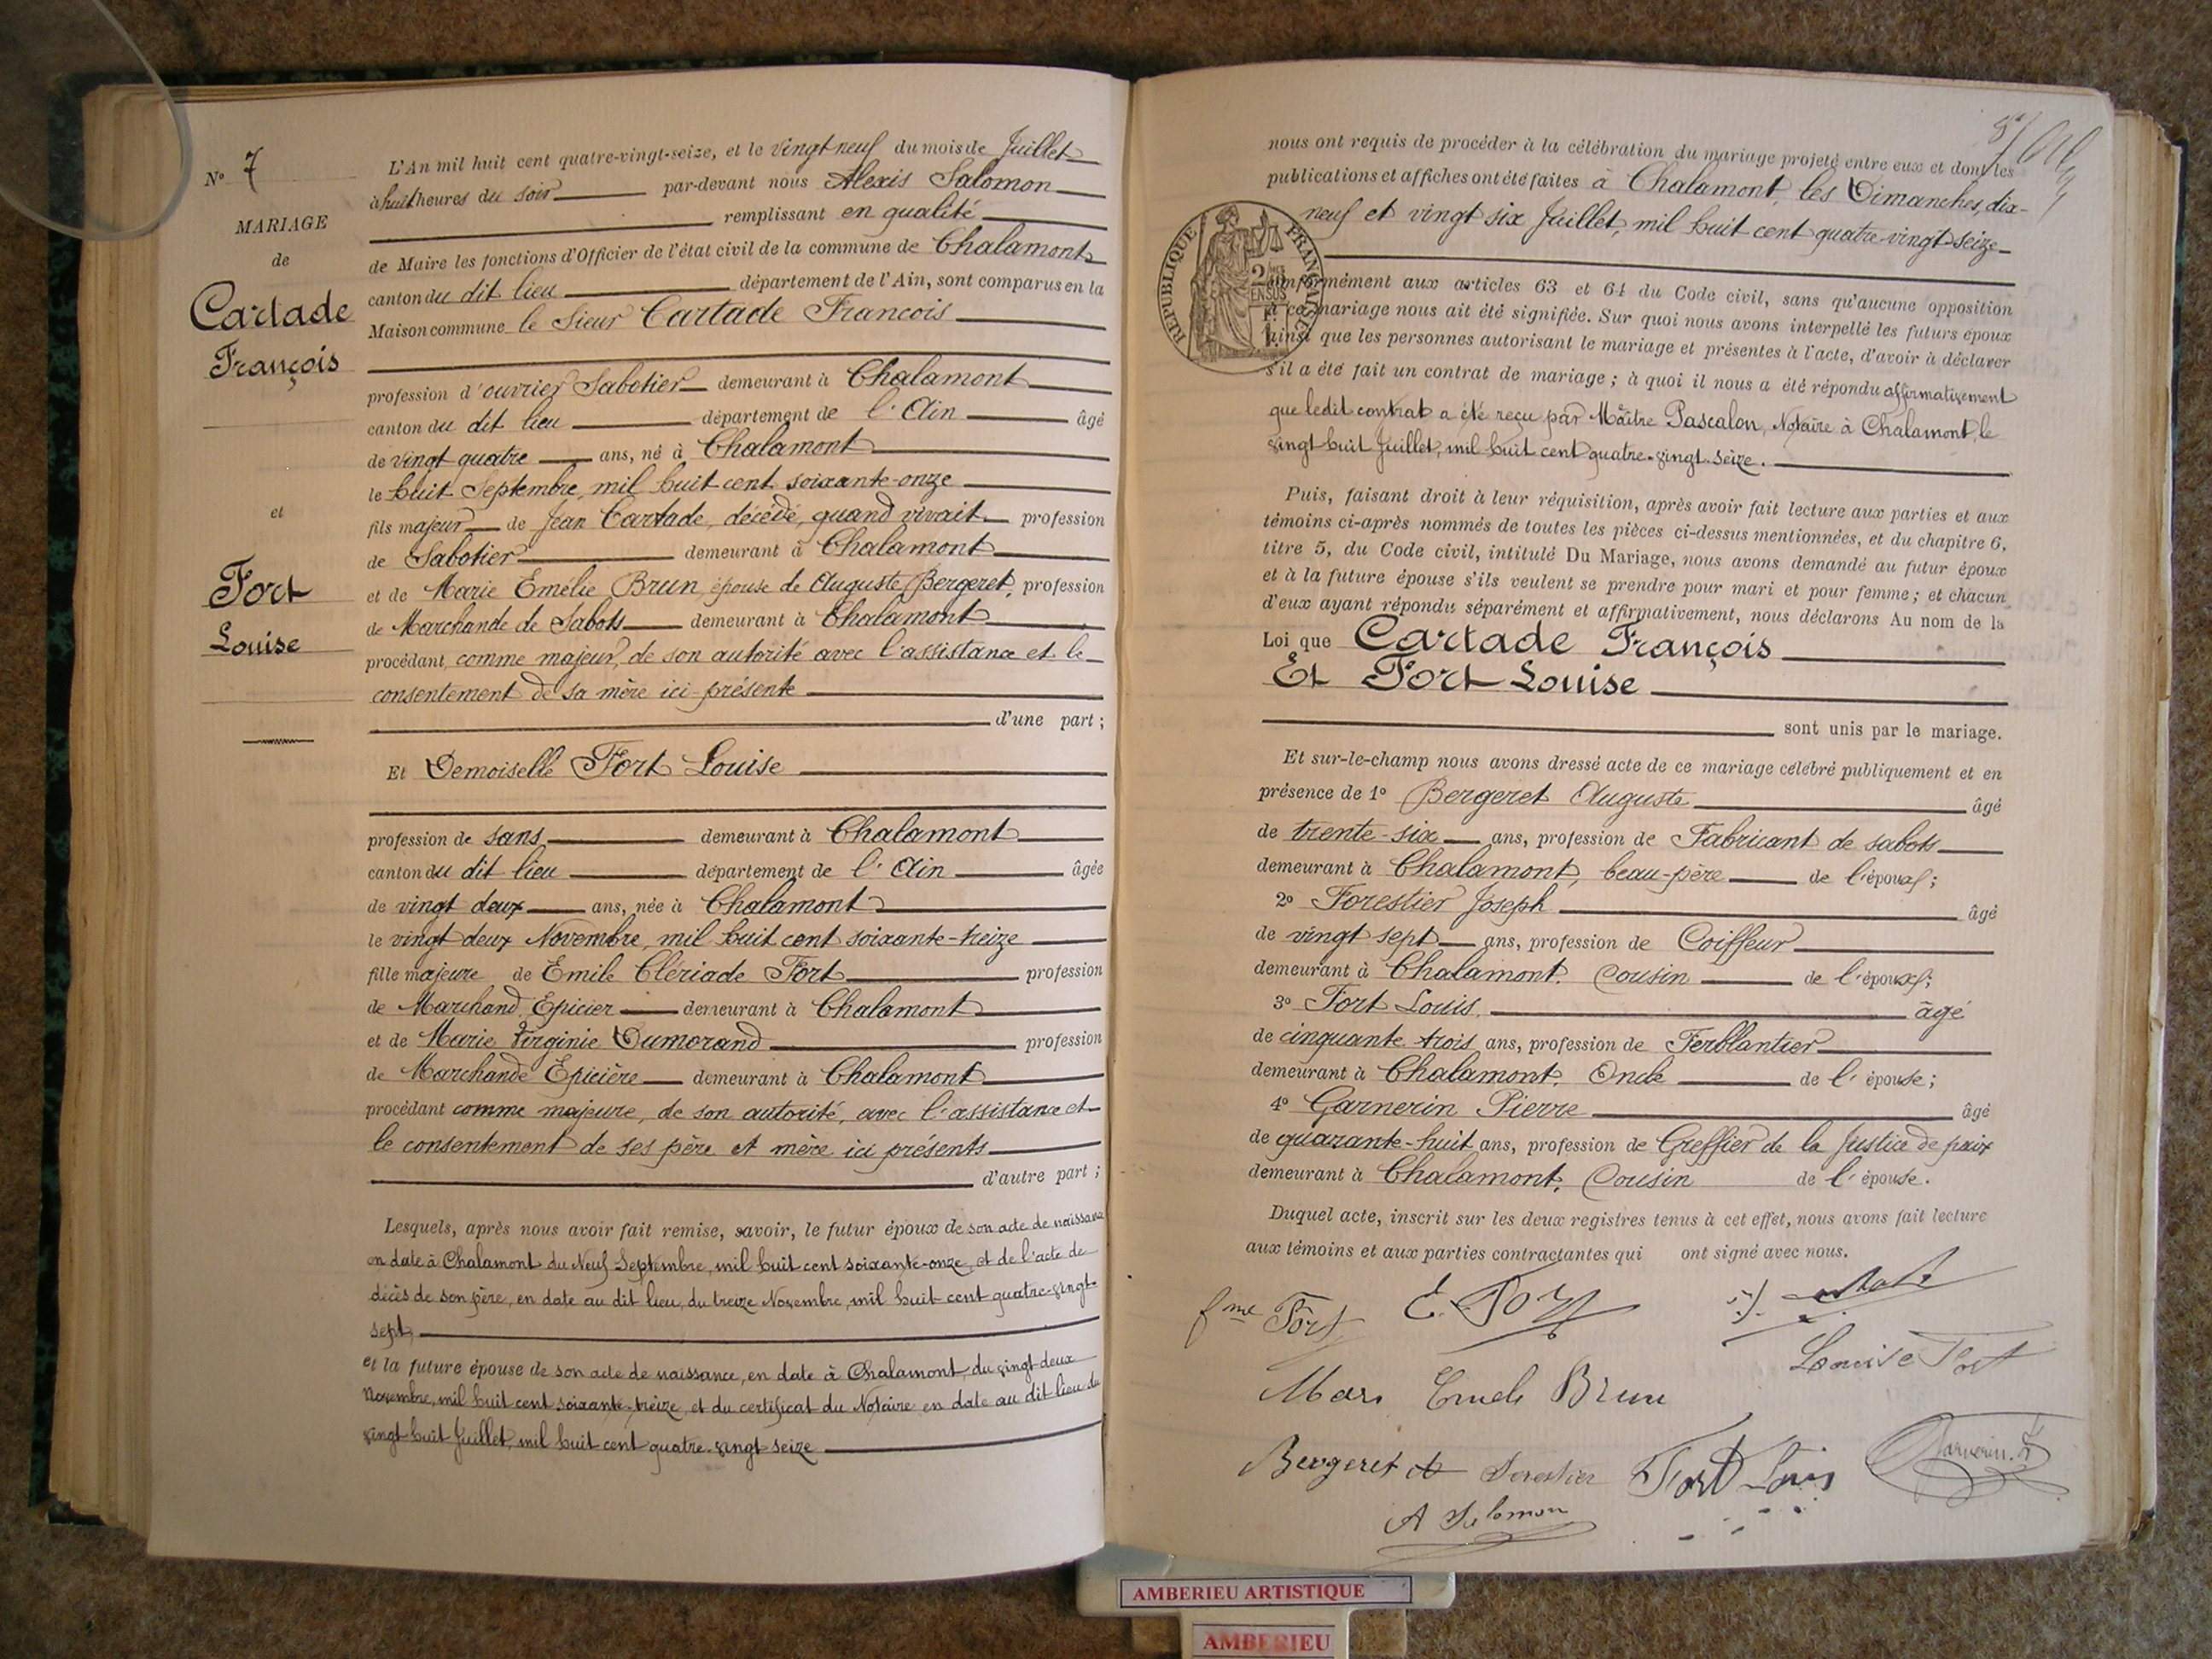 N° 7
MARIAGE
de
Cartade
François
et
Fort
Louise
L'An mil huit cent quatre-vingt-seize, et le vingt neuf du mois de Juillet
à huit heures du soir par-devant nous Alexis Salomon
remplissant en qualité
de Maire les fonctions d'Officier de l'état civil de la commune de Chalamont
canton du dit lieu département de l'Ain, sont comparus en la
Maison commune le Sieur Cartade Francois
profession d'ouvrier Sabotier demeurant à Chalamont
canton du dit lieu département de l'Ain âgé
de vingt quatre ans, né à Chalamont
le huit Septembre, mil huit cent soixante-onze
fils majeur de Jean Cartade, décédé, quand vivait profession
de Sabotier demeurant à Chalamont
et de Marie Emélie Brun épouse de Auguste Bergeret, profession
de Marchande de Sabots demeurant à Chalamont
procédant, comme majeur, de son autorité avec l'assistance et le
consentement de sa mère ici présente
d'une part ;
Et Demoiselle Fort Louise
profession de sans demeurant à Chalamont
canton du dit lieu département de l'Ain âgée
de vingt deux ans, née à Chalamont
le vingt deux Novembre, mil huit cent soixante-treize
fille majeure de Emile Clériade Fort profession
de Marchand Epicier demeurant à Chalamont
et de Marie Virginie Dumorand profession
de Marchande Epicière demeurant à Chalamont
procédant comme majeure, de son autorité, avec l'assistance et
le consentement de ses père et mère ici présents
d'autre part ;
Lesquels, après nous avoir fait remise, savoir, le futur époux de son acte de naissance
en date à Chalamont du Neuf Septembre, mil huit cent soixante-onze, et de l'acte de
décès de son père, en date au dit lieu, du treize Novembre, mil huit cent quatre-vingt-
sept,
et la future épouse de son acte de naissance, en date à Chalamont, du vingt-deux
Novembre, mil huit cent soixante-treize, et du certificat du Notaire en date au dit lieu du
vingt huit Juillet, mil huit cent quatre-vingt seize
nous ont requis de procéder à la célébration du mariage projeté entre eux et dont les
publications et affiches ont été faites à Chalamont, les Dimanches, dix-
neuf et vingt six Juillet, mil huit cent quatre vingt seize
REPUBLIQUE FRANÇAISE
conformément aux articles 63 et 64 du Code civil, sans qu'aucune opposition
à ce mariage nous ait été signifiée. Sur quoi nous avons interpellé les futurs époux
ainsi que les personnes autorisant le mariage et présentes à l'acte, d'avoir à déclarer
s'il a été fait un contrat de mariage ; à quoi il nous a été répondu affirmativement
que ledit contrat a été reçu par Maître Pascalon, Notaire à Chalamont, le
vingt huit Juillet, mil huit cent quatre-vingt-seize.
Puis, faisant droit à leur réquisition, après avoir fait lecture aux parties et aux
témoins ci-après nommés de toutes les pièces ci-dessus mentionnées, et du chapitre 6,
titre 5, du Code civil, intitulé Du Mariage, nous avons demandé au futur époux
et à la future épouse s'ils veulent se prendre pour mari et pour femme ; et chacun
d'eux ayant répondu séparément et affirmativement, nous déclarons Au nom de la
Loi que Cartade François
Et Fort Louise
sont unis par le mariage.
Et sur-le-champ nous avons dressé acte de ce mariage célébré publiquement et en
présence de 1° Bergeret Auguste âgé
de trente-six ans, profession de Fabricant de sabots
demeurant à Chalamont, beau-père de l'époux ;
2° Forestier Joseph âgé
de vingt sept ans, profession de Coiffeur
demeurant à Chalamont. Cousin de l'époux ;
3° Fort Louis. âgé
de cinquante trois ans, profession de Ferblantier
demeurant à Chalamont. Oncle de l'épouse ;
4° Garnerin Pierre âgé
de quarante-huit ans, profession de Greffier de la Justice de paix
demeurant à Chalamont. Cousin de l'épouse.
Duquel acte, inscrit sur les deux registres tenus à cet effet, nous avons fait lecture
aux témoins et aux parties contractantes qui ont signé avec nous.
fme Fort E. Fort
Louise Fort
Brun
Bergeret Forestier Fort Louis Garnerin
A Salomon
AMBERIEU ARTISTIQUE
AMBERIEU